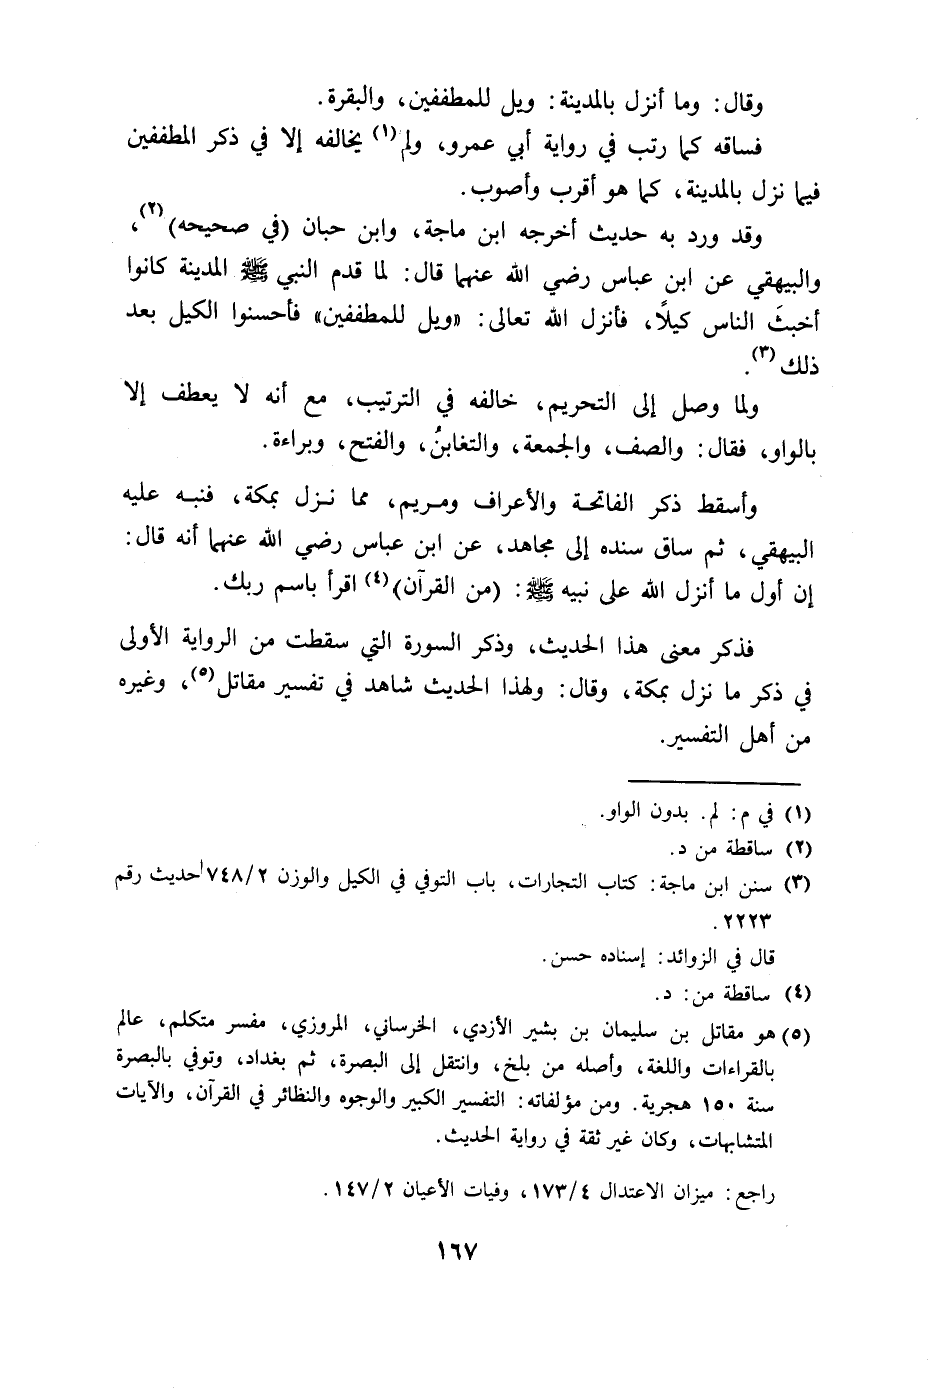 وقال: وما أنزل بالمدينة: ويل للمطففين، والبقرة.
فساقه كما رتب في رواية أبي عمرو، ولم(١) يخالفه إلا في ذكر المطففين
فيما نزل بالمدينة، كما هو أقرب وأصوب.
وقد ورد به حديث أخرجه ابن ماجة، وابن حبان (في صحيحه)(٢)،
والبيهقي عن ابن عباس رضي الله عنهما قال: لما قدم النبي ﷺ المدينة كانوا
أخبثَ الناس كيلاً، فأنزل الله تعالى: «ويل للمطففين» فأحسنوا الكيل بعد
ذلك(٣).
ولما وصل إلى التحريم، خالفه في الترتيب، مع أنه لا يعطف إلا
بالواو، فقال: والصف، والجمعة، والتغابنُ، والفتح، وبراءة.
وأسقط ذكر الفاتحة والأعراف ومريم، مما نزل بمكة، فنبه عليه
البيهقي، ثم ساق سنده إلى مجاهد، عن ابن عباس رضي الله عنهما أنه قال:
إن أول ما أنزل الله على نبيه ﷺ: (من القرآن)(٤) اقرأ باسم ربك.
فذكر معنى هذا الحديث، وذكر السورة التي سقطت من الرواية الأولى
في ذكر ما نزل بمكة، وقال: ولهذا الحديث شاهد في تفسير مقاتل(٥)، وغيره
من أهل التفسير.
(١) في م: لم. بدون الواو.
(٢) ساقطة من د.
(٣) سنن ابن ماجة: كتاب التجارات، باب التوفي في الكيل والوزن ٧٤٨/٢ حديث رقم
٢٢٢٣.
قال في الزوائد: إسناده حسن.
(٤) ساقطة من: د.
(٥) هو مقاتل بن سليمان بن بشير الأزدي، الخرساني، المروزي، مفسر متكلم، عالم
بالقراءات واللغة، وأصله من بلخ، وانتقل إلى البصرة، ثم بغداد، وتوفي بالبصرة
سنة ١٥٠ هجرية. ومن مؤلفاته: التفسير الكبير والوجوه والنظائر في القرآن، والآيات
المتشابهات، وكان غير ثقة في رواية الحديث.
راجع: ميزان الاعتدال ١٧٣/٤، وفيات الأعيان ١٤٧/٢.
١٦٧